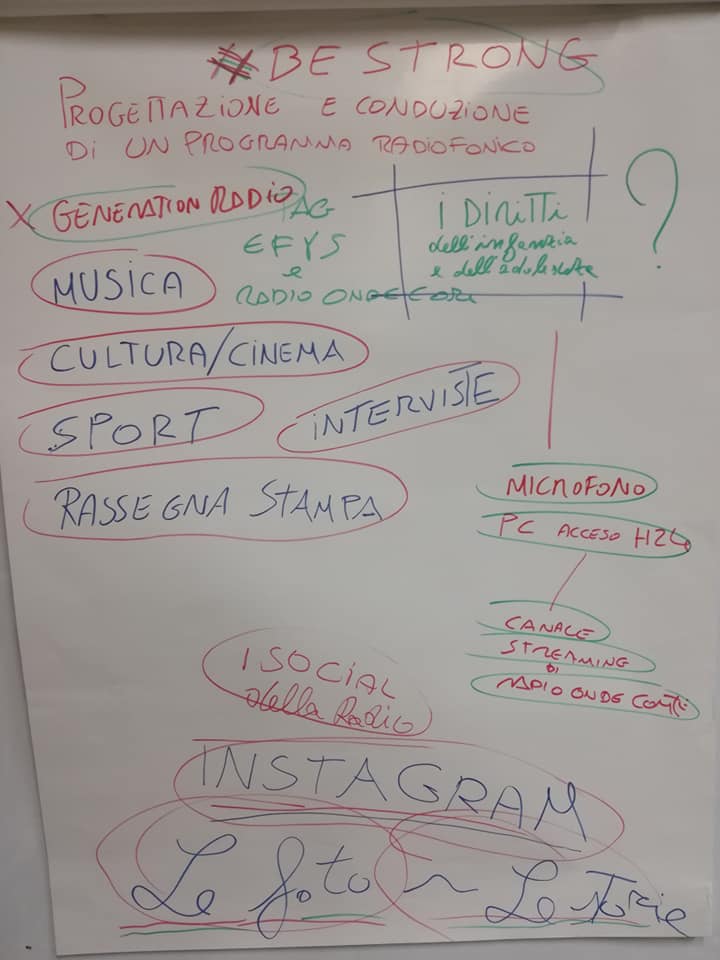 #BE STRONG
PROGETTAZIONE E CONDUZIONE
DI UN PROGRAMMA RADIOFONICO
X GENERATION RADIO
TAG
EFYS
e
RADIO ONDE
I DIRITTI
dell'infanzia
e dell'adolescente
?
MUSICA
CULTURA/CINEMA
SPORT
INTERVISTE
RASSEGNA STAMPA
MICROFONO
PC ACCESO H24
CANALE
STREAMING
DI
RADIO ONDE
I SOCIAL
della Radio
INSTAGRAM
Le foto ~ Le storie